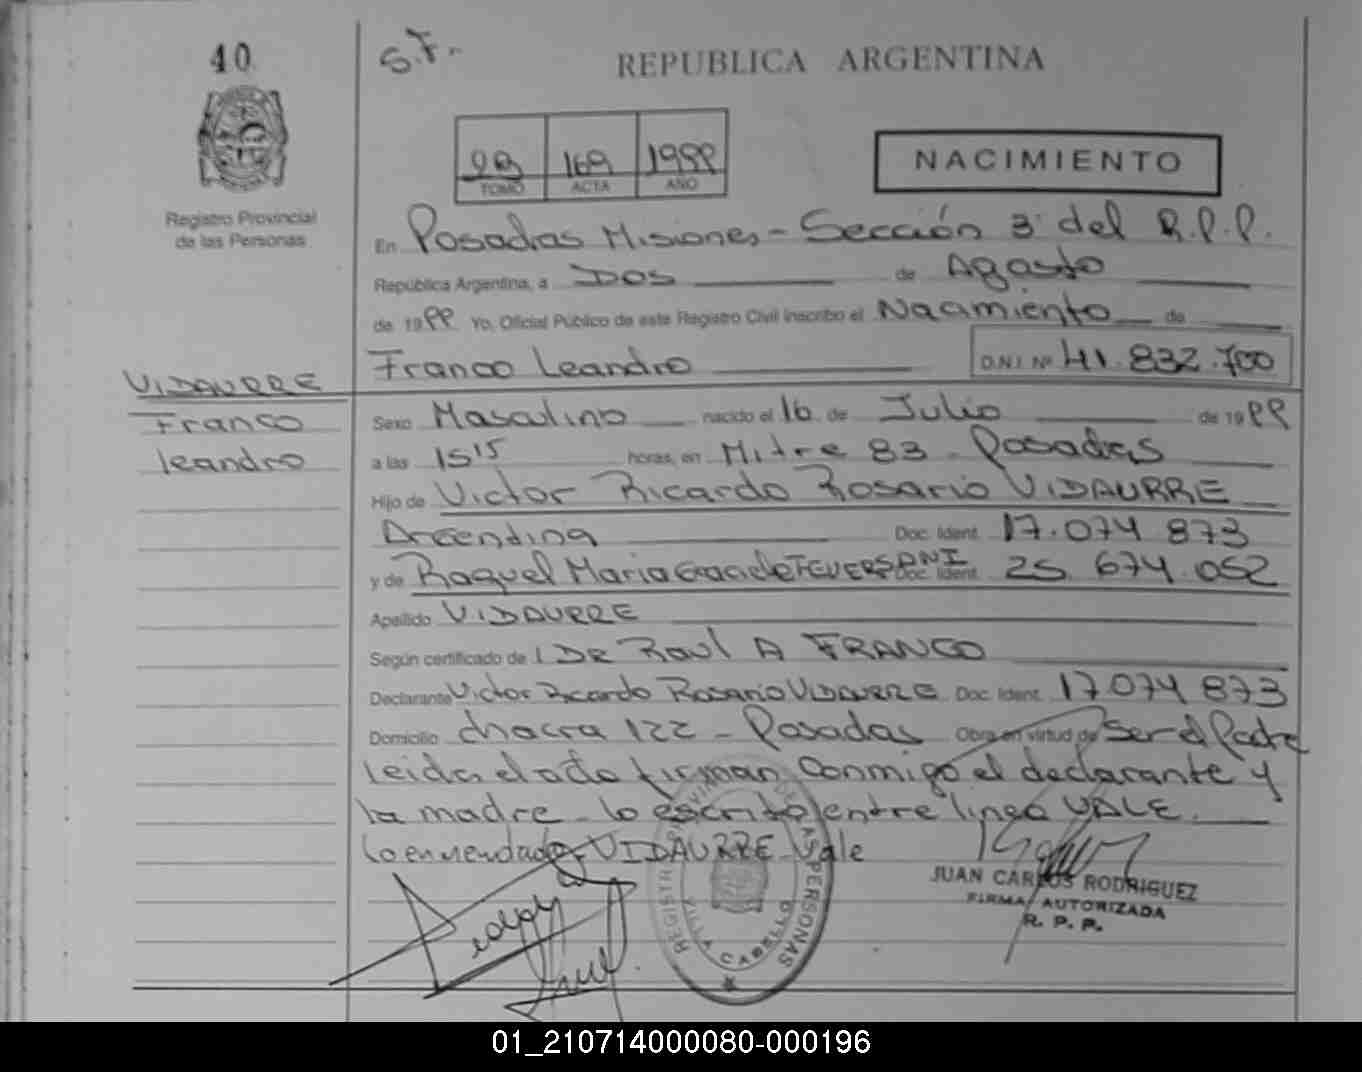 40
S.F.
REPUBLICA ARGENTINA
Registro Provincial
de las Personas
169 1999
TOMO ACTA AÑO
NACIMIENTO
En Posadas Misiones - Sección 3ª del R.P.P.
República Argentina, a Dos de Agosto
de 1999 Yo, Oficial Público de este Registro Civil inscribo el Nacimiento de
Franco Leandro D.N.I. Nº 41.832.700
VIDAURRE
Franco
Leandro
Sexo Masculino nacido el 16 de Julio de 1999
a las 15 15 horas, en Mitre 83 - Posadas
Hijo de Victor Ricardo Rosario VIDAURRE
Argentina Doc. Ident. 17.074 873
y de Raquel Maria Doc. Ident. 25.674.052
Apellido VIDAURRE
Según certificado de DR Raul A FRANCO
Declarante Victor Ricardo Rosario VIDAURRE Doc. Ident. 17.074 873
Domicilio chacra 122 - Posadas Obra en virtud de Ser el Padre
leida el acta firman conmigo el declarante y
la madre - lo escrito entre linea VALE.
lo enmendado - VIDAURRE - Vale
REGISTRO PROVINCIAL DE LAS PERSONAS
VILLA CABELLO
JUAN CARLOS RODRIGUEZ
FIRMA AUTORIZADA
R. P. P.
01_210714000080-000196